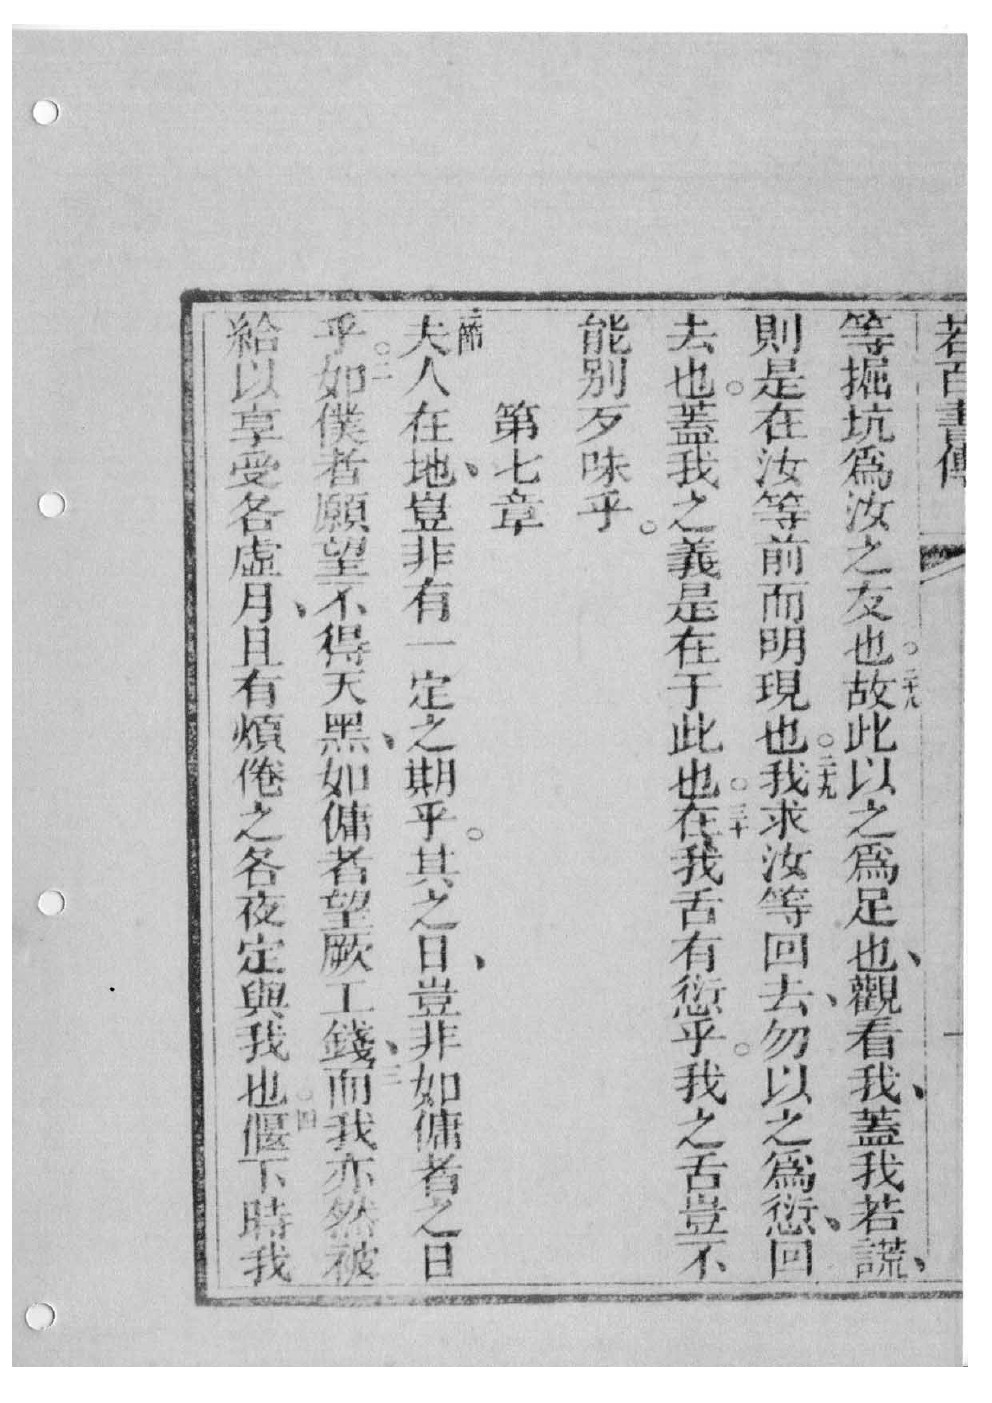 若百書傳
等掘坑為汝之友也。二十八故此以之為足也、觀看我、蓋我若謊、
則是在汝等前而明現也。二十九我求汝等回去、勿以之為愆、回
去也。蓋我之義是在于此也。三十在我舌有愆乎。我之舌豈不
能別歹味乎。
第七章
一節夫人在地、豈非有一定之期乎。其之日、豈非如傭者之日
乎。二如僕者願望不得天黑、如傭者望厥工錢、三而我亦然被
給以享受各虛月、且有煩倦之各夜定與我也。四偃下時我